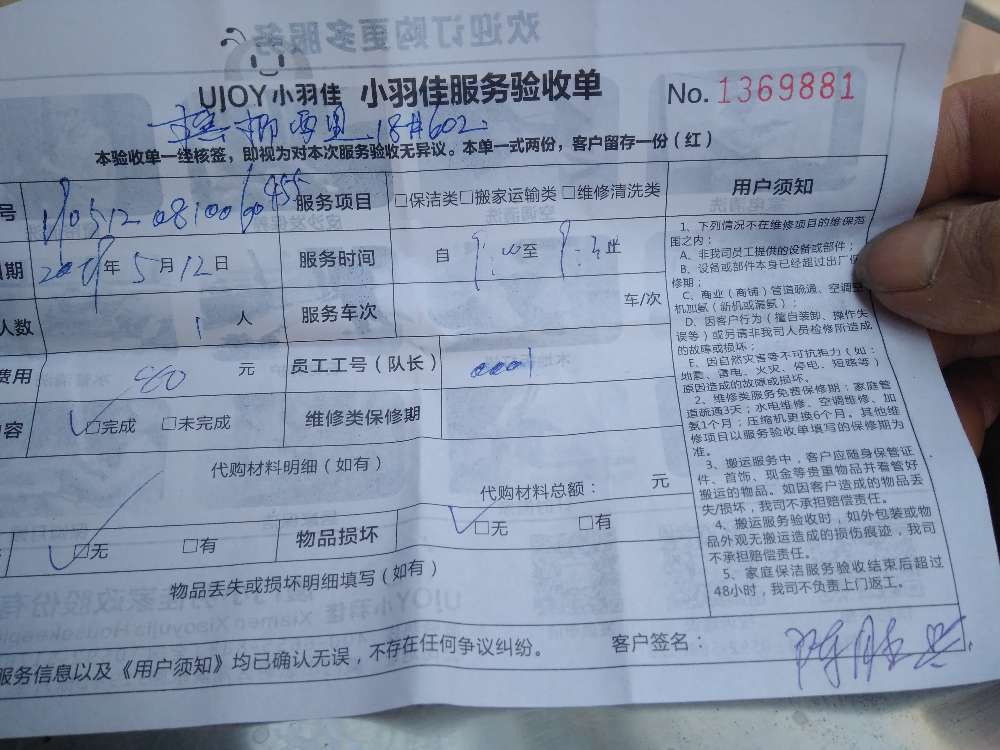 欢迎订购更多服务
UJOY小羽佳 小羽佳服务验收单 No.1369881
18#602
本验收单一经核签，即视为对本次服务验收无异议。本单一式两份，客户留存一份（红）
号 服务项目 □保洁类□搬家运输类□维修清洗类
期 年5月12日 服务时间 自 至 止
人数 1人 服务车次 车/次
费用 80 元 员工工号（队长） 0001
内容 □完成 □未完成 维修类保修期
代购材料明细（如有）
代购材料总额： 元
□无 □有 物品损坏 □无 □有
物品丢失或损坏明细填写（如有）
服务信息以及《用户须知》均已确认无误，不存在任何争议纠纷。 客户签名：
用户须知
1、下列情况不在维修项目的维保范
围之内：
A、非我司员工提供的设备或部件；
B、设备或部件本身已经超过出厂保
修期；
C、商业（商铺）管道疏通、空调
机加氨（新机或漏氨）；
D、因客户行为（擅自装卸、操作失
误等）或另请非我司人员检修所造成
的故障或损坏；
E、因自然灾害等不可抗拒力（如：
地震、雷电、火灾、停电、短路等）
原因造成的故障或损坏。
2、维修类服务免费保修期：家庭管
道疏通3天；水电维修、空调维修、加
氨1个月；压缩机更换6个月。其他维
修项目以服务验收单填写的保修期为
准。
3、搬运服务中，客户应随身保管证
件、首饰、现金等贵重物品并看管好
搬运的物品。如因客户造成的物品丢
失/损坏，我司不承担赔偿责任。
4、搬运服务验收时，如外包装或物
品外观无搬运造成的损伤痕迹，我司
不承担赔偿责任。
5、家庭保洁服务验收结束后超过
48小时，我司不负责上门返工。